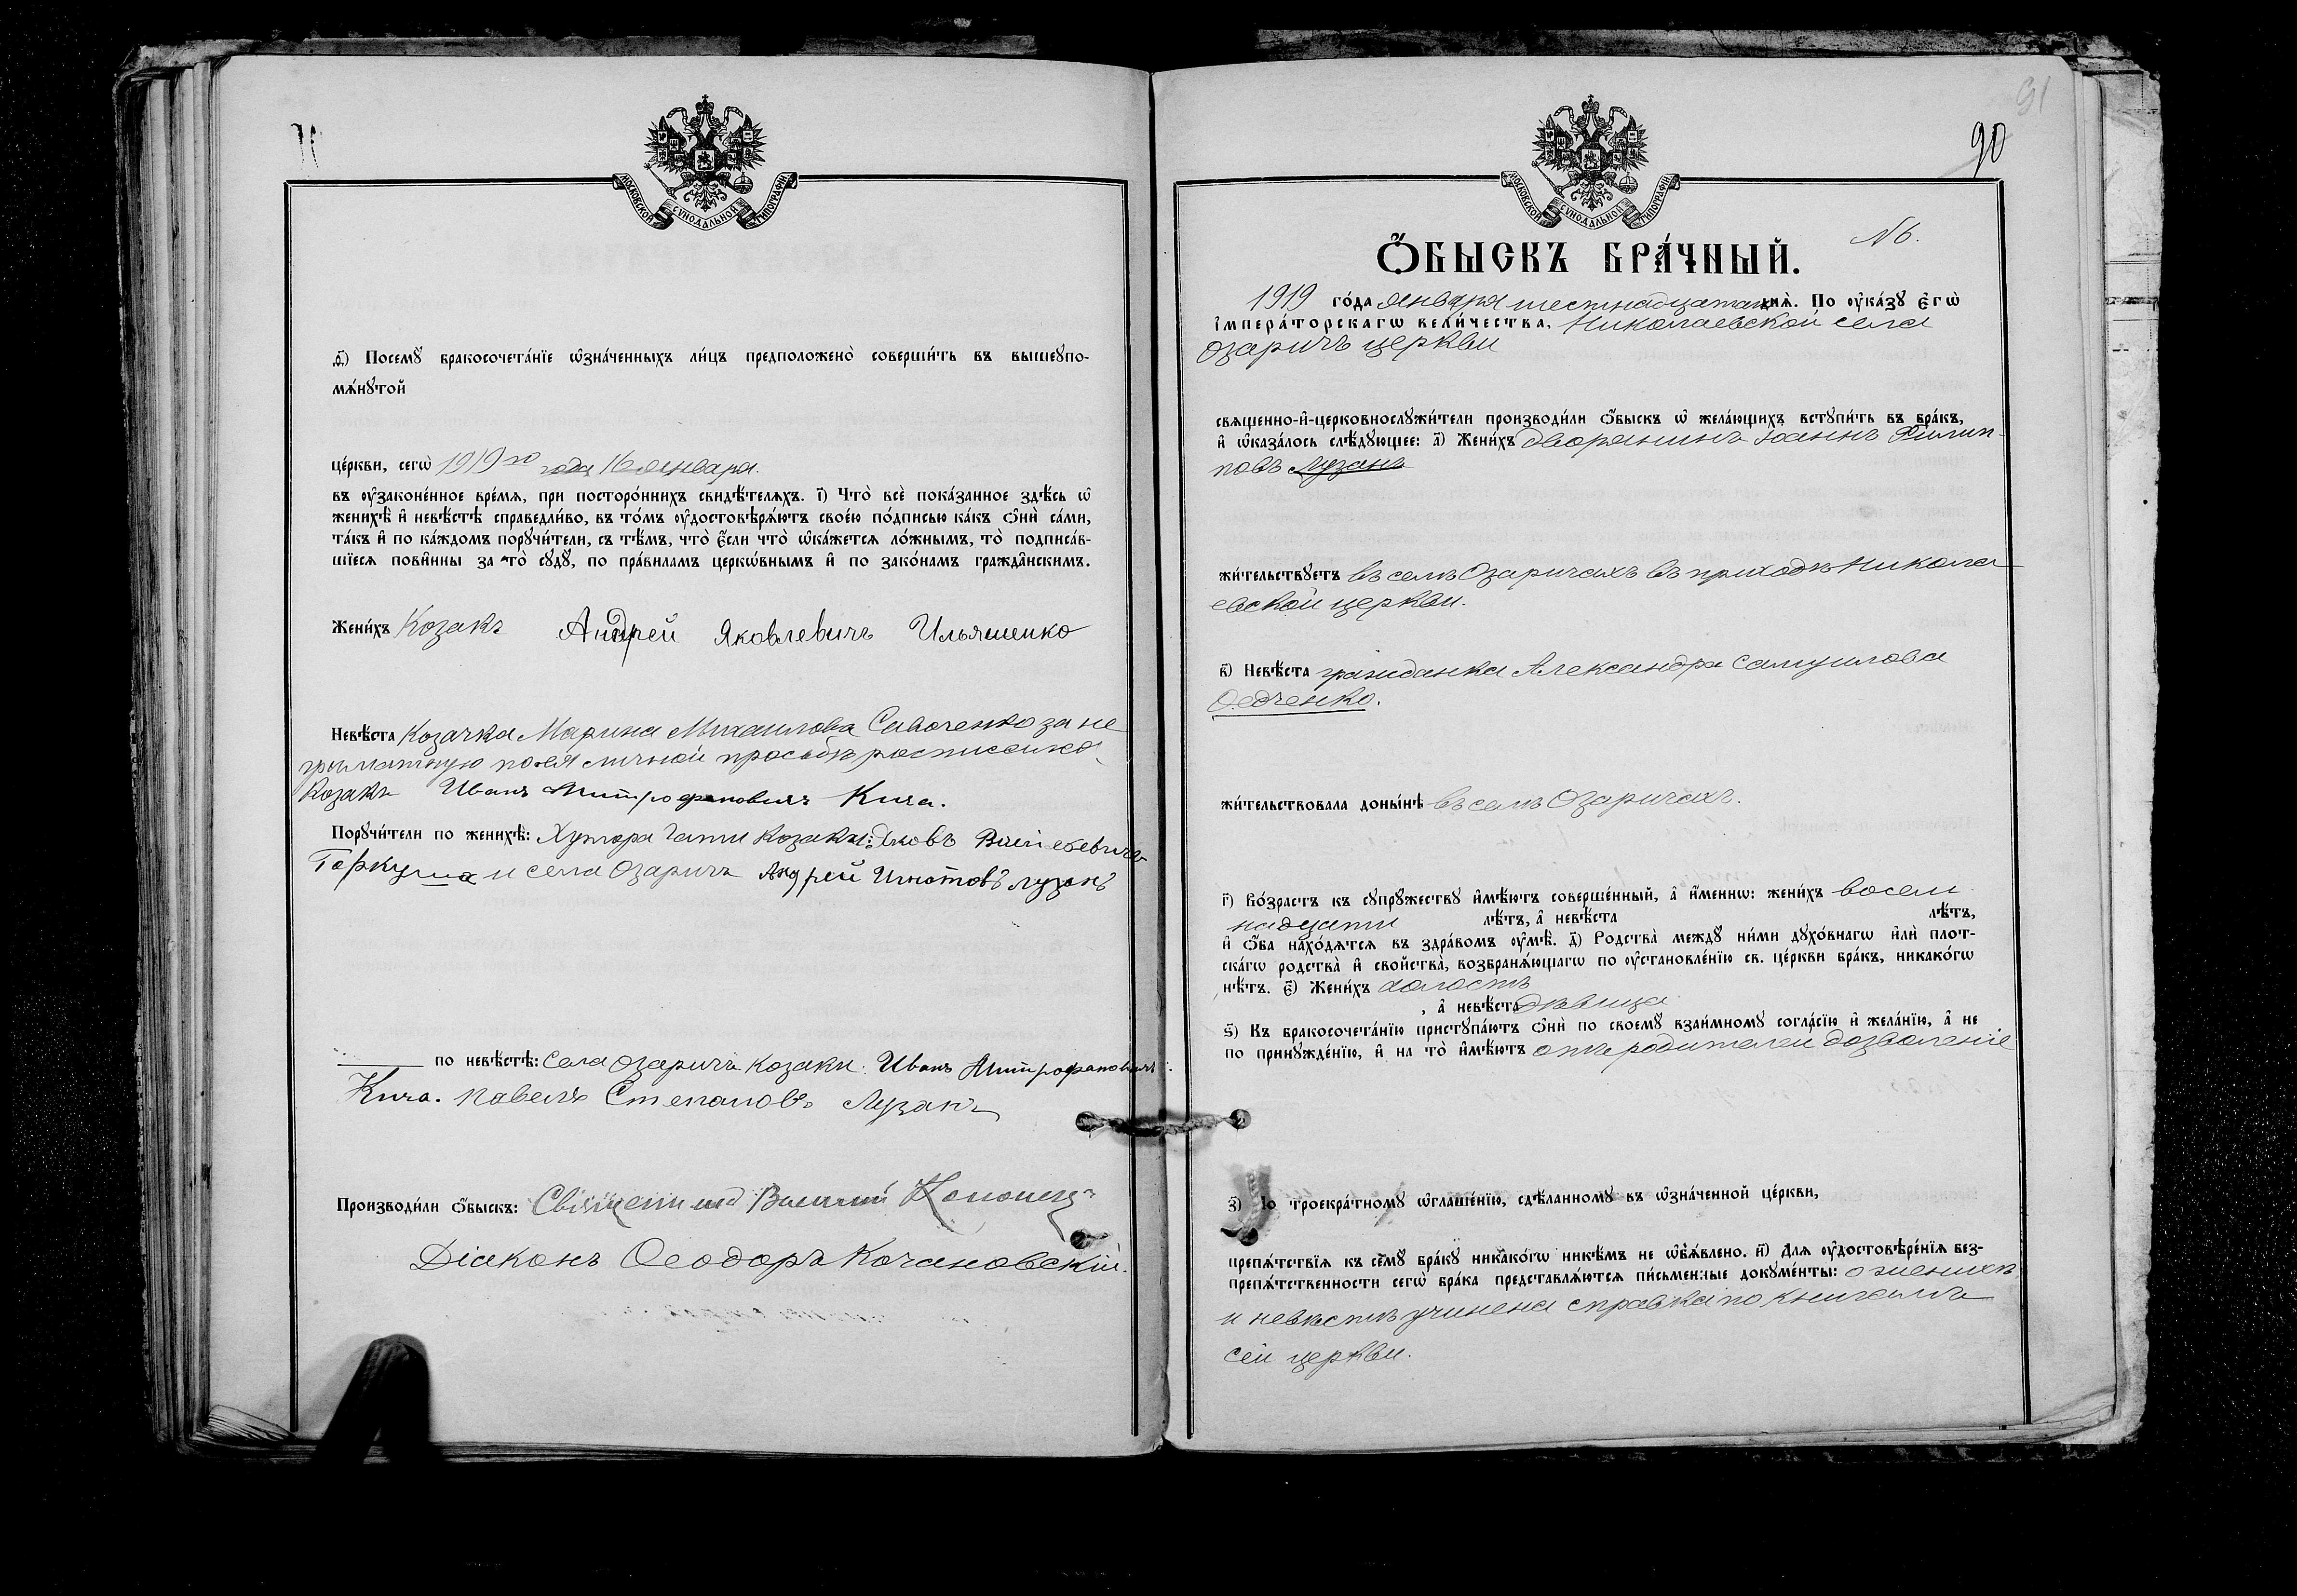 МОСКОВСКОЙ СѴНОДАЛЬНОЙ ТИПОГРАФІИ
Посемꙋ̀ бракосочета́нїе ѡ҆зна́ченныхъ ли́цъ предположено̀ соверши́ть въ вышеꙋпо-
мѧ́нꙋтой
це́ркви, сегѡ̀ 1919го года 16 января.
въ ᲂу҆законе́нное вре́мѧ, при посторо́ннихъ свидѣ́телѧхъ. і҃) Что̀ всѐ пока́занное здѣ́сь ѡ҆
женихѣ̀ и҆ невѣ́стѣ справедли́во, въ то́мъ ᲂу҆достовѣрѧ́ютъ свое́ю по́дписью ка́къ ѻ҆нѝ са́ми,
та́къ и҆ по ка́ждомъ порꙋчи́тели, съ тѣ́мъ, что̀ є҆́сли что̀ ѡ҆ка́жетсѧ ло́жнымъ, то̀ подписа́в-
шїесѧ пови́нны за то̀ сꙋдꙋ̀, по пра́виламъ церко́внымъ и҆ по зако́намъ гражда́нскимъ.
Жени́хъ Козакъ Андрей Яковлевичъ Ильяшенко
Невѣ́ста Козачка Марина Михаилова Савченко за не
грамотную по ея личной просьбѣ росписался
Козакъ Иванъ Митрофановичъ Кича.
Порꙋчи́тели по женихѣ̀: Хутора Гати Козаки: Яковъ
Горкуша и села Озаричъ Андрей Игнатовъ Лузанъ
по невѣ́стѣ: Села Озаричъ козаки: Иванъ Митрофановичъ
Кича. Павелъ Степановъ Лузанъ
Производи́ли ѻ҆́быскъ: Священникъ Василий
Діаконъ Ѳеодоръ Кочановскій.
91
90
МОСКОВСКОЙ СѴНОДАЛЬНОЙ ТИПОГРАФІИ
№6.
Ѻ҆́БЫСКЪ БРА́ЧНЫЙ.
1919 го́да января шестнадцатаго днѧ̀. По ᲂу҆ка́зꙋ є҆гѡ̀
і҆мпера́торскагѡ вели́чества, Николаевской села
Озаричъ церкви
свѧщенно-и҆-церковнослꙋжи́тели производи́ли ѻ҆́быскъ ѡ҆ жела́ющихъ встꙋпи́ть въ бра́къ,
и҆ ѡ҆каза́лось слѣ́дꙋющее: а҃) Жени́хъ дворянинъ Іоаннъ Филип-
повъ Лузанъ
жи́тельствꙋетъ въ селѣ Озаричахъ въ приходѣ Никола-
евской церкви.
в҃) Невѣ́ста гражданка Александра Самуилова
Ѳедченко.
жи́тельствовала доны́нѣ въ селѣ Озаричахъ.
г҃) Во́зрастъ къ сꙋпрꙋ́жествꙋ и҆мѣ́ютъ соверше́нный, а҆ и҆́меннѡ: жени́хъ восем
надцати лѣ́тъ, а҆ невѣ́ста лѣ́тъ,
и҆ ѻ҆́ба нахо́дѧтсѧ въ здра́вомъ ᲂу҆мѣ̀. д҃) Родства̀ междꙋ̀ ни́ми дꙋхо́внагѡ и҆лѝ плот-
ска́гѡ родства̀ и҆ сво́йства, возбранѧ́ющагѡ по ᲂу҆становле́нїю св. це́ркви бра́къ, никако́гѡ
нѣ́тъ. є҃) Жени́хъ холостъ
, а҆ невѣ́ста дѣвица
ѕ҃) Къ бракосочета́нїю пристꙋпа́ютъ ѻ҆нѝ по своемꙋ̀ взаи́мномꙋ согла́сїю и҆ жела́нїю, а҆ не
по принꙋжде́нїю, и҆ на то̀ и҆мѣ́ютъ отъ родителей дозволеніе
з҃) По троекра́тномꙋ ѡ҆глаше́нїю, сдѣ́ланномꙋ въ ѡ҆зна́ченной це́ркви,
препѧ́тствїѧ къ семꙋ̀ бра́кꙋ никако́гѡ никѣ́мъ не ѡ҆б̾ѧ́влено. и҃) Длѧ ᲂу҆достовѣре́нїѧ без-
препѧ́тственности сегѡ̀ бра́ка представлѧ́ютсѧ пи́сьменные докꙋме́нты: о женихѣ
и невѣстѣ учинена справка по книгамъ
сей церкви.